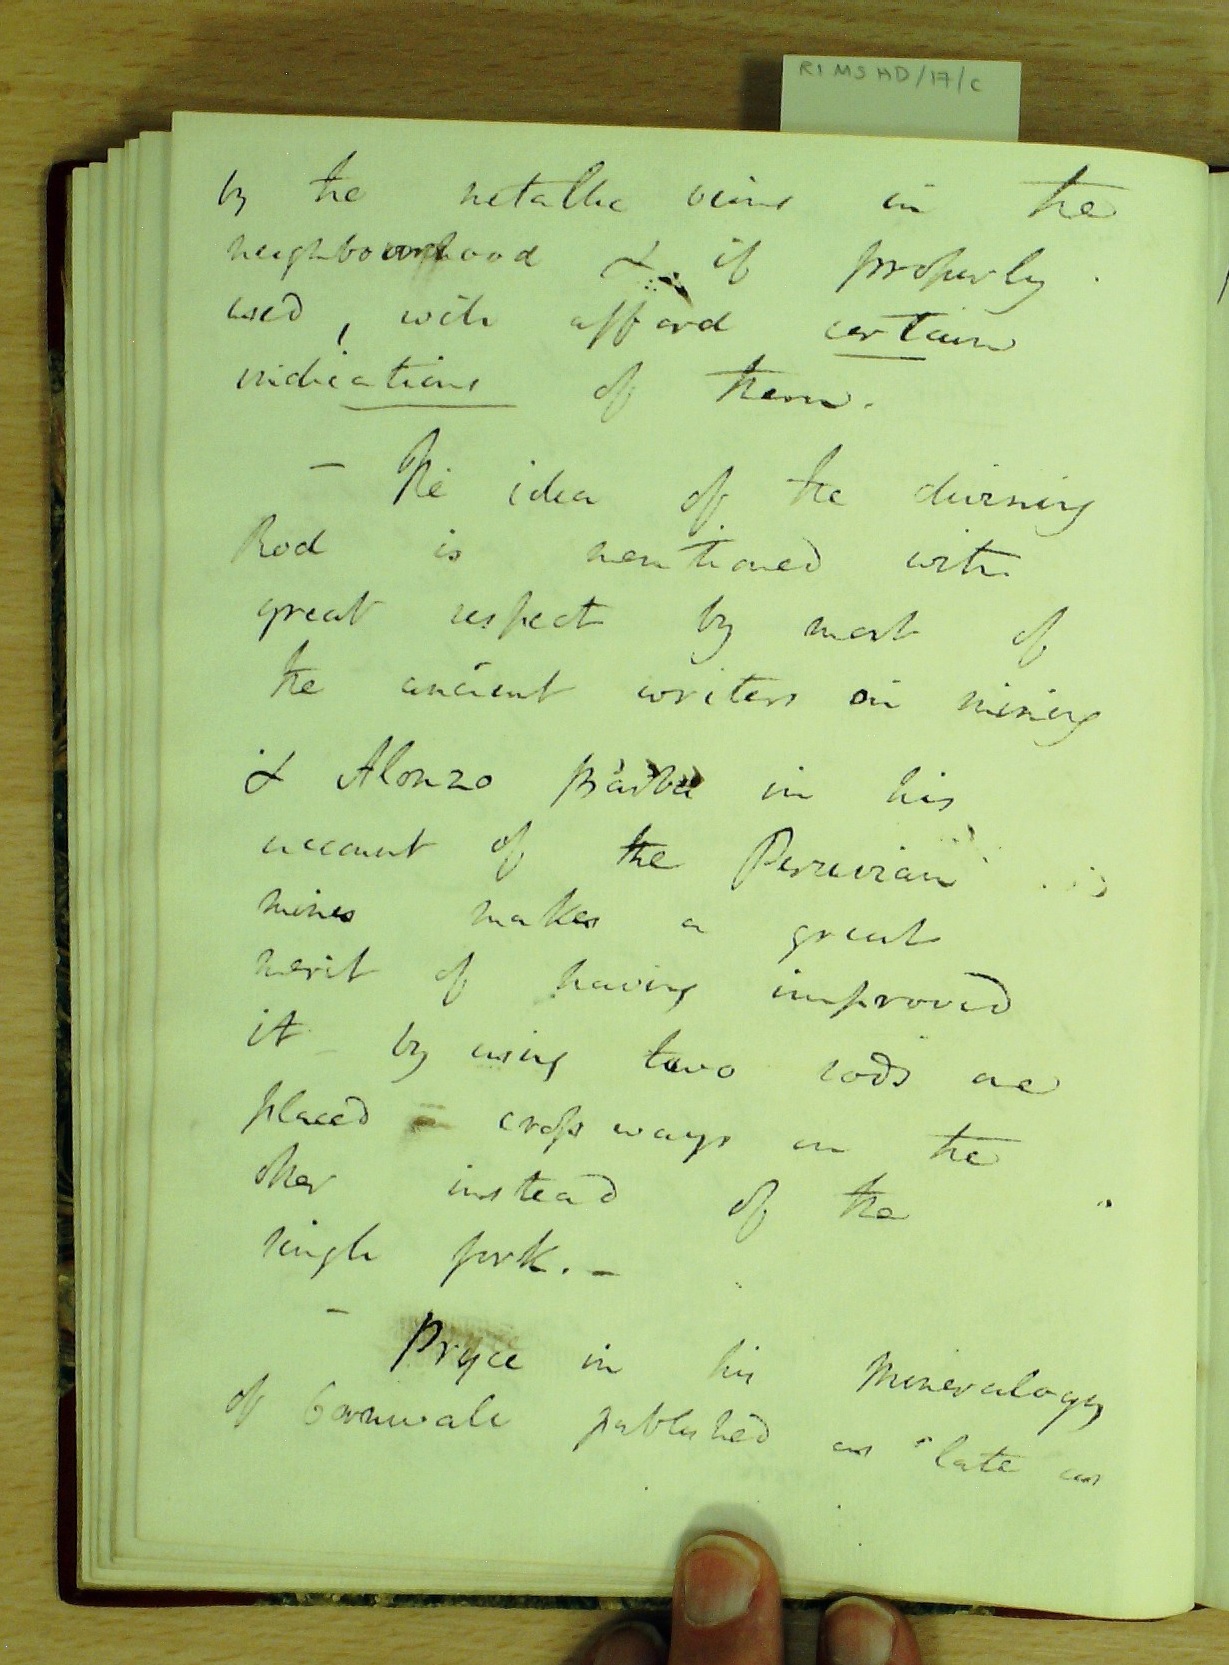 RI MS HD/17/C
by the metallic veins in the
neighbourhood & if properly
used, will afford certain
indications of them.
– The idea of the divining
Rod is mentioned with
great respect by most of
the ancient writers on mining
& Alonzo Barba in his
account of the Peruvian
mines makes a great
merit of having improved
it by using two rods one
placed – crossways on the
other instead of the
single fork. –
– Pryce in his Mineralogy
of Cornwall published as late as